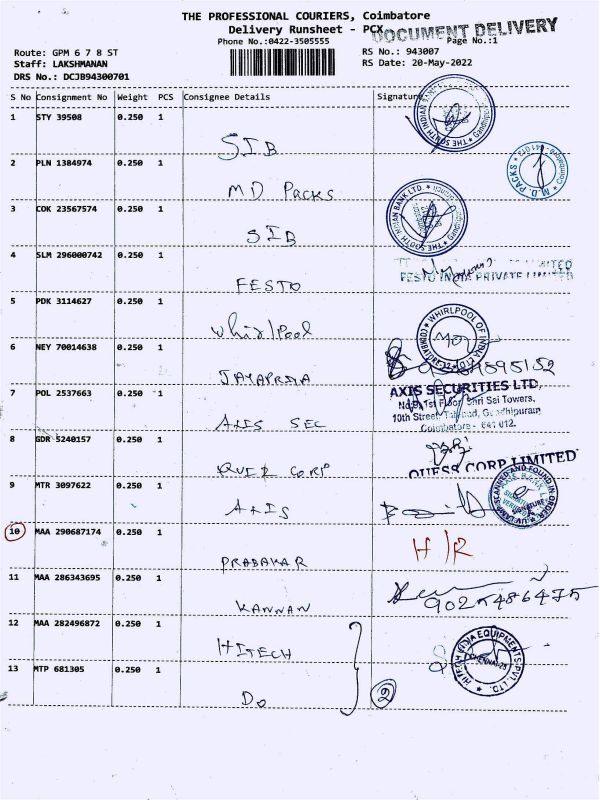 THE PROFESSIONAL COURIERS, Coimbatore
Delivery Runsheet - PCX
DOCUMENT DELIVERY
Phone No.:0422-3505555
Page No.:1
Route: GPM 6 7 8 ST
RS No.: 943007
Staff: LAKSHMANAN
RS Date: 20-May-2022
DRS No.: DCJB94300701
S No Consignment No Weight PCS Consignee Details Signature
1 STY 39508 0.250 1
SIB
THE SOUTH INDIAN
2 PLN 1384974 0.250 1
MD PACKS
M.D. PACKS
3 COK 23567574 0.250 1
SIB
THE SOUTH INDIAN BANK LTD.
4 SLM 296000742 0.250 1
FESTO
FESTO INDIA PRIVATE LIMITED
5 PDK 3114627 0.250 1
Whirlpool
WHIRLPOOL OF INDIA
6 NEY 70014638 0.250 1
JAYAPRIYA
7 POL 2537663 0.250 1
AXIS SEC
AXIS SECURITIES LTD,
No.9, 1st Floor, Shri Sai Towers,
10th Street, Tatabad, Gandhipuram
Coimbatore - 641 012.
8 GDR 5240157 0.250 1
QUER CORP
QUESS CORP LIMITED
9 MTR 3097622 0.250 1
AXIS
10 MAA 290687174 0.250 1
PRABAKAR
H/R
11 MAA 286343695 0.250 1
KANNAN
12 MAA 282496872 0.250 1
HITECH
13 MTP 681305 0.250 1
Do
2